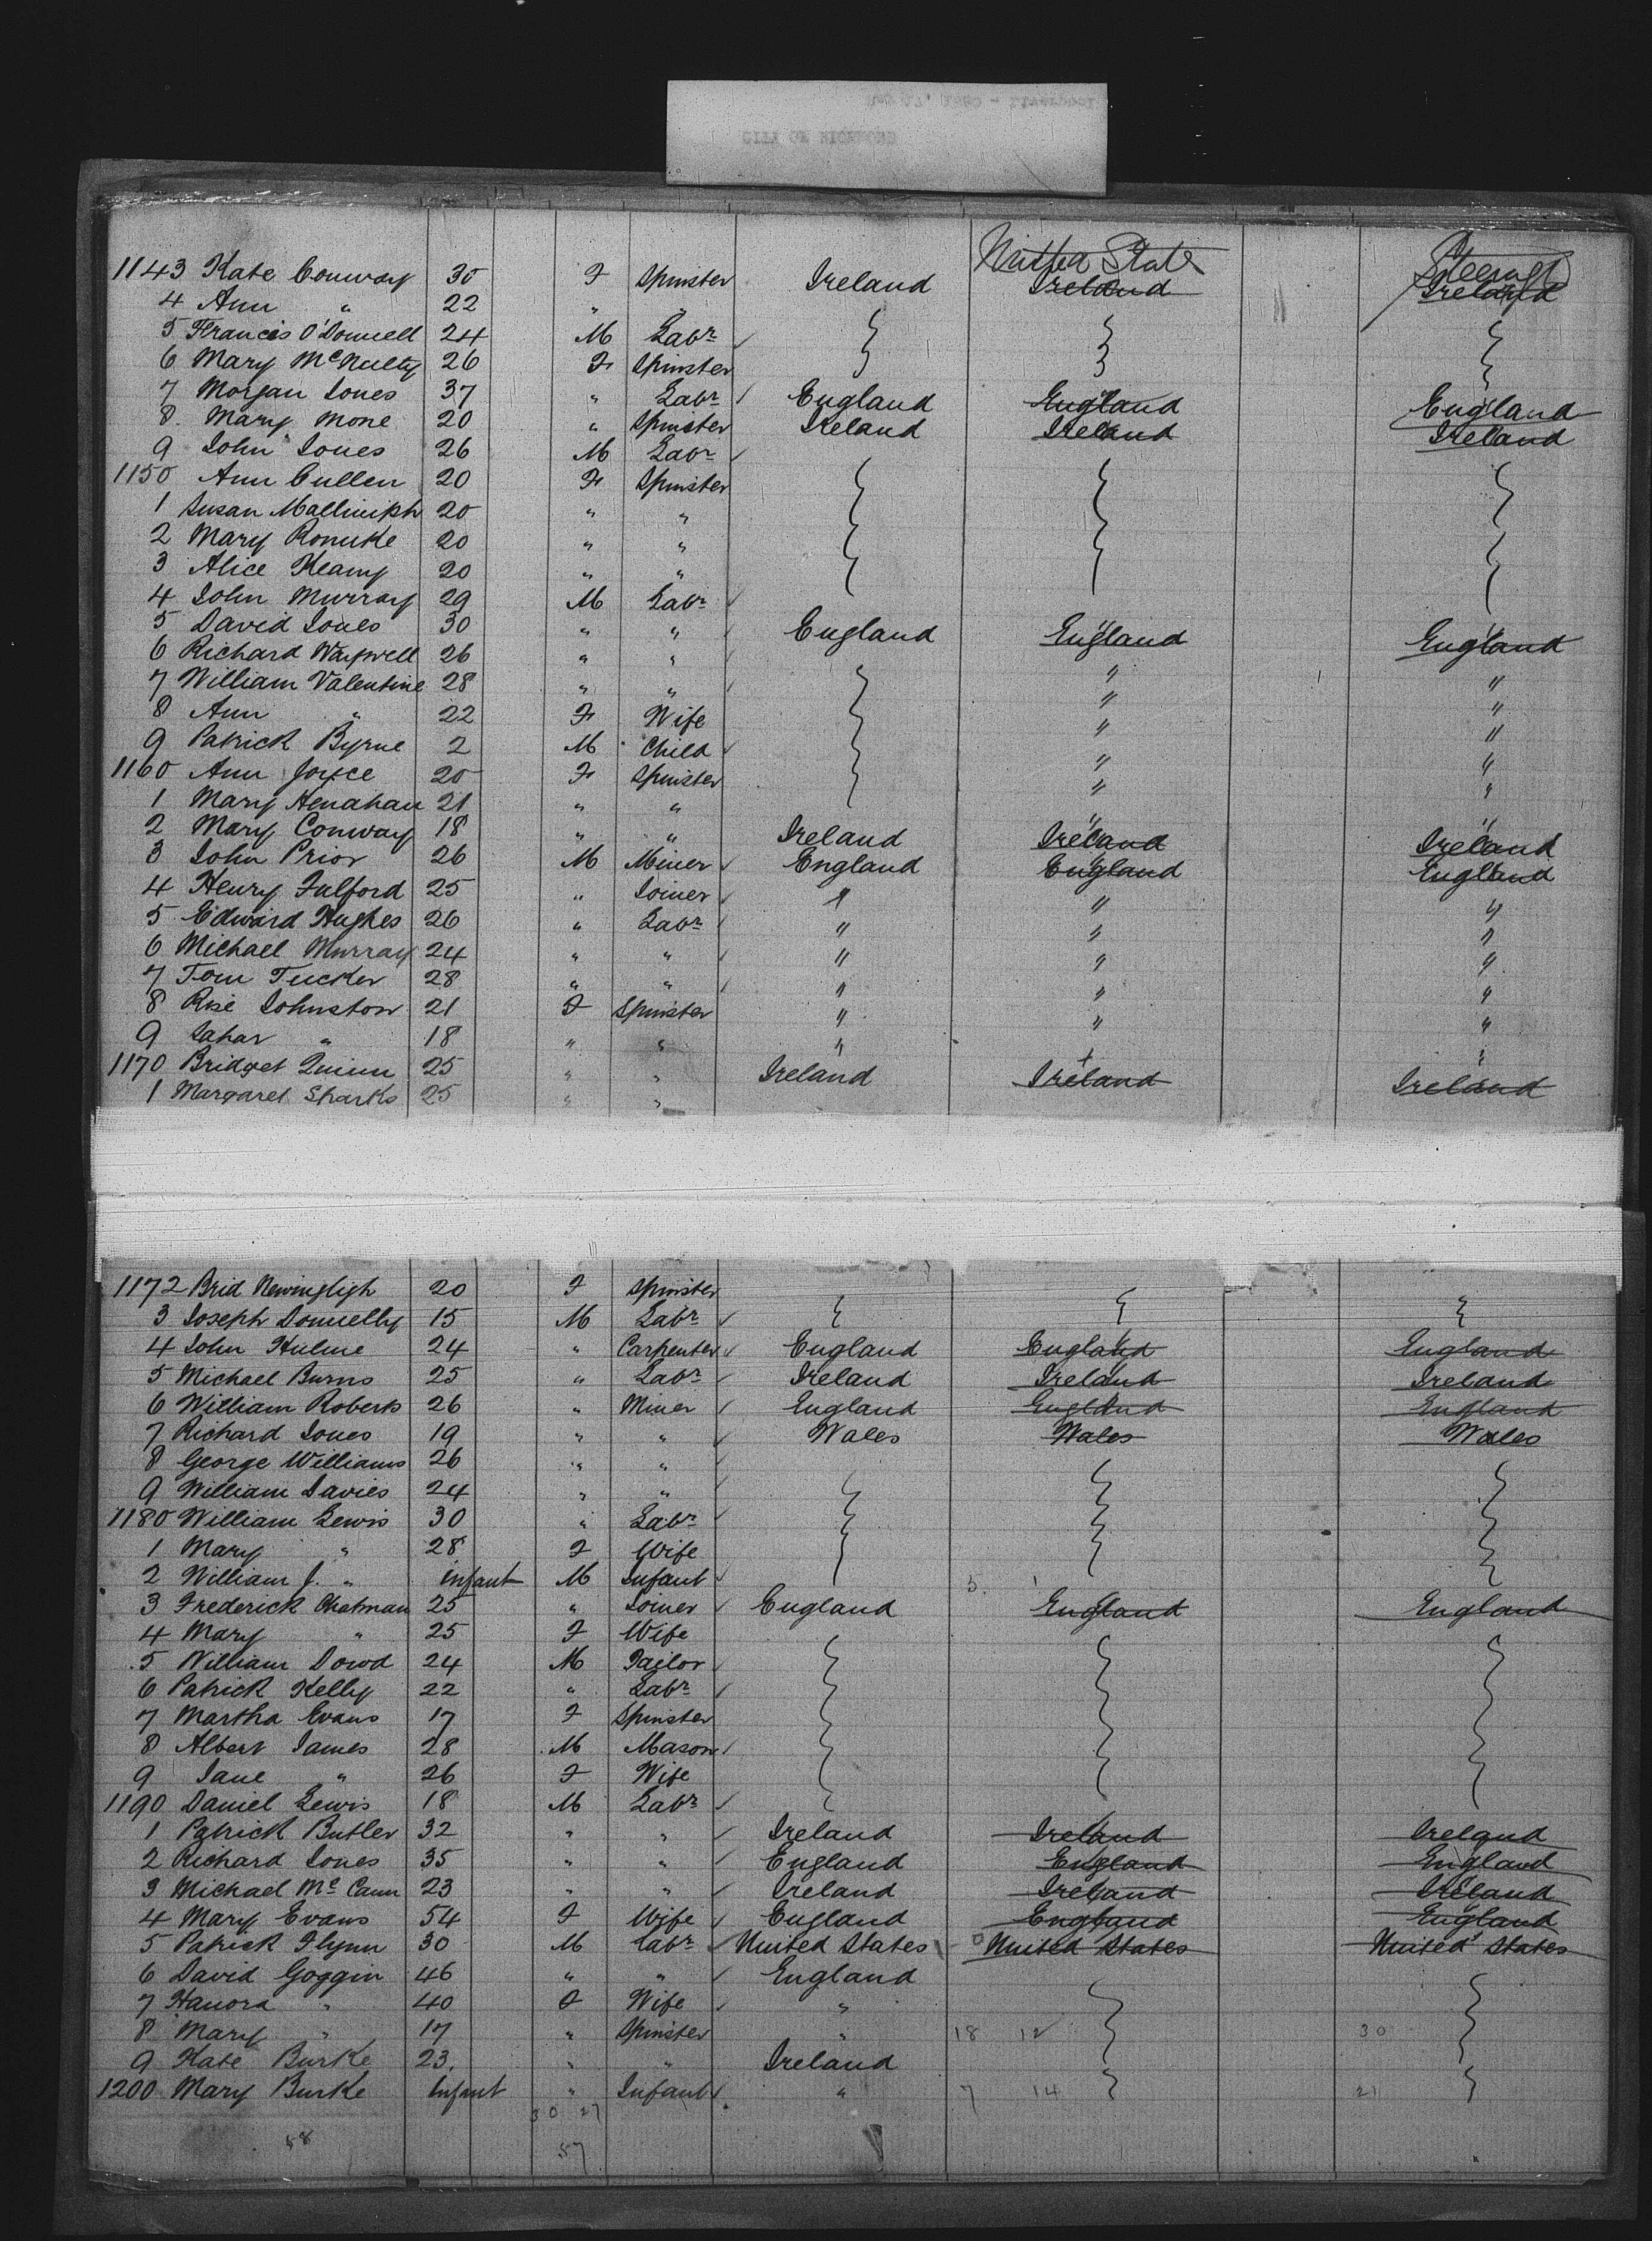 CITY OF RICHMOND
United States Steerage
1143 Kate Conway 30 F Spinster Ireland Ireland Ireland
4 Ann " 22 "
5 Francis O'Donnell 24 M Labr
6 Mary McNulty 26 F Spinster
7 Morgan Jones 37 " Labr England England England
8 Mary Mone 20 " Spinster Ireland Ireland Ireland
9 John Jones 26 M Labr
1150 Ann Cullen 20 F Spinster
1 Susan 20 " "
2 Mary 20 " "
3 Alice Keamy 20 " "
4 John Murray 29 M Labr
5 David Jones 30 " " England England England
6 Richard 26 " "
7 William Valentine 28 " " " "
8 Ann " 22 F Wife " "
9 Patrick Byrne 2 M Child " "
1160 Ann Joyce 20 F Spinster " "
1 Mary Henahan 21 " " " "
2 Mary Conway 18 " " Ireland Ireland Ireland
3 John Prior 26 M Miner England England England
4 Henry Fulford 25 " Joiner " " "
5 Edward Hughes 26 " Labr " " "
6 Michael Murray 24 " " " " "
7 Tom Tucker 28 " " " " "
8 Rose Johnston 21 F Spinster " " "
9 Sahar " 18 " " " " "
1170 Bridget Quinn 25 " " Ireland Ireland Ireland
1 Margaret Sharks 25 " "
1172 Brid 20 F Spinster
3 Joseph Donnelly 15 M Labr
4 John Hulme 24 " Carpenter England England England
5 Michael Burns 25 " Labr Ireland Ireland Ireland
6 William Roberts 26 " Miner England England England
7 Richard Jones 19 " " Wales Wales Wales
8 George Williams 26 " "
9 William Davies 24 " "
1180 William Lewis 30 " Labr
1 Mary " 28 F Wife
2 William J. " Infant M Infant
3 Frederick Chatman 25 " Joiner England England England
4 Mary " 25 F Wife
5 William Dowd 24 M Tailor
6 Patrick Kelly 22 " Labr
7 Martha Evans 17 F Spinster
8 Albert James 28 M Mason
9 Jane " 26 F Wife
1190 Daniel Lewis 18 M Labr
1 Patrick Butler 32 " " Ireland Ireland Ireland
2 Richard Jones 35 " " England England England
3 Michael McCann 23 " " Ireland Ireland Ireland
4 Mary Evans 54 F Wife England England England
5 Patrick Flynn 30 M Labr United States United States United States
6 David Goggin 46 " " England
7 Hanora " 40 F Wife "
8 Mary " 17 " Spinster " 18 12 30
9 Kate Burke 23. " " Ireland
1200 Mary Burke Infant " Infant " 7 14 21
30 27
58 57